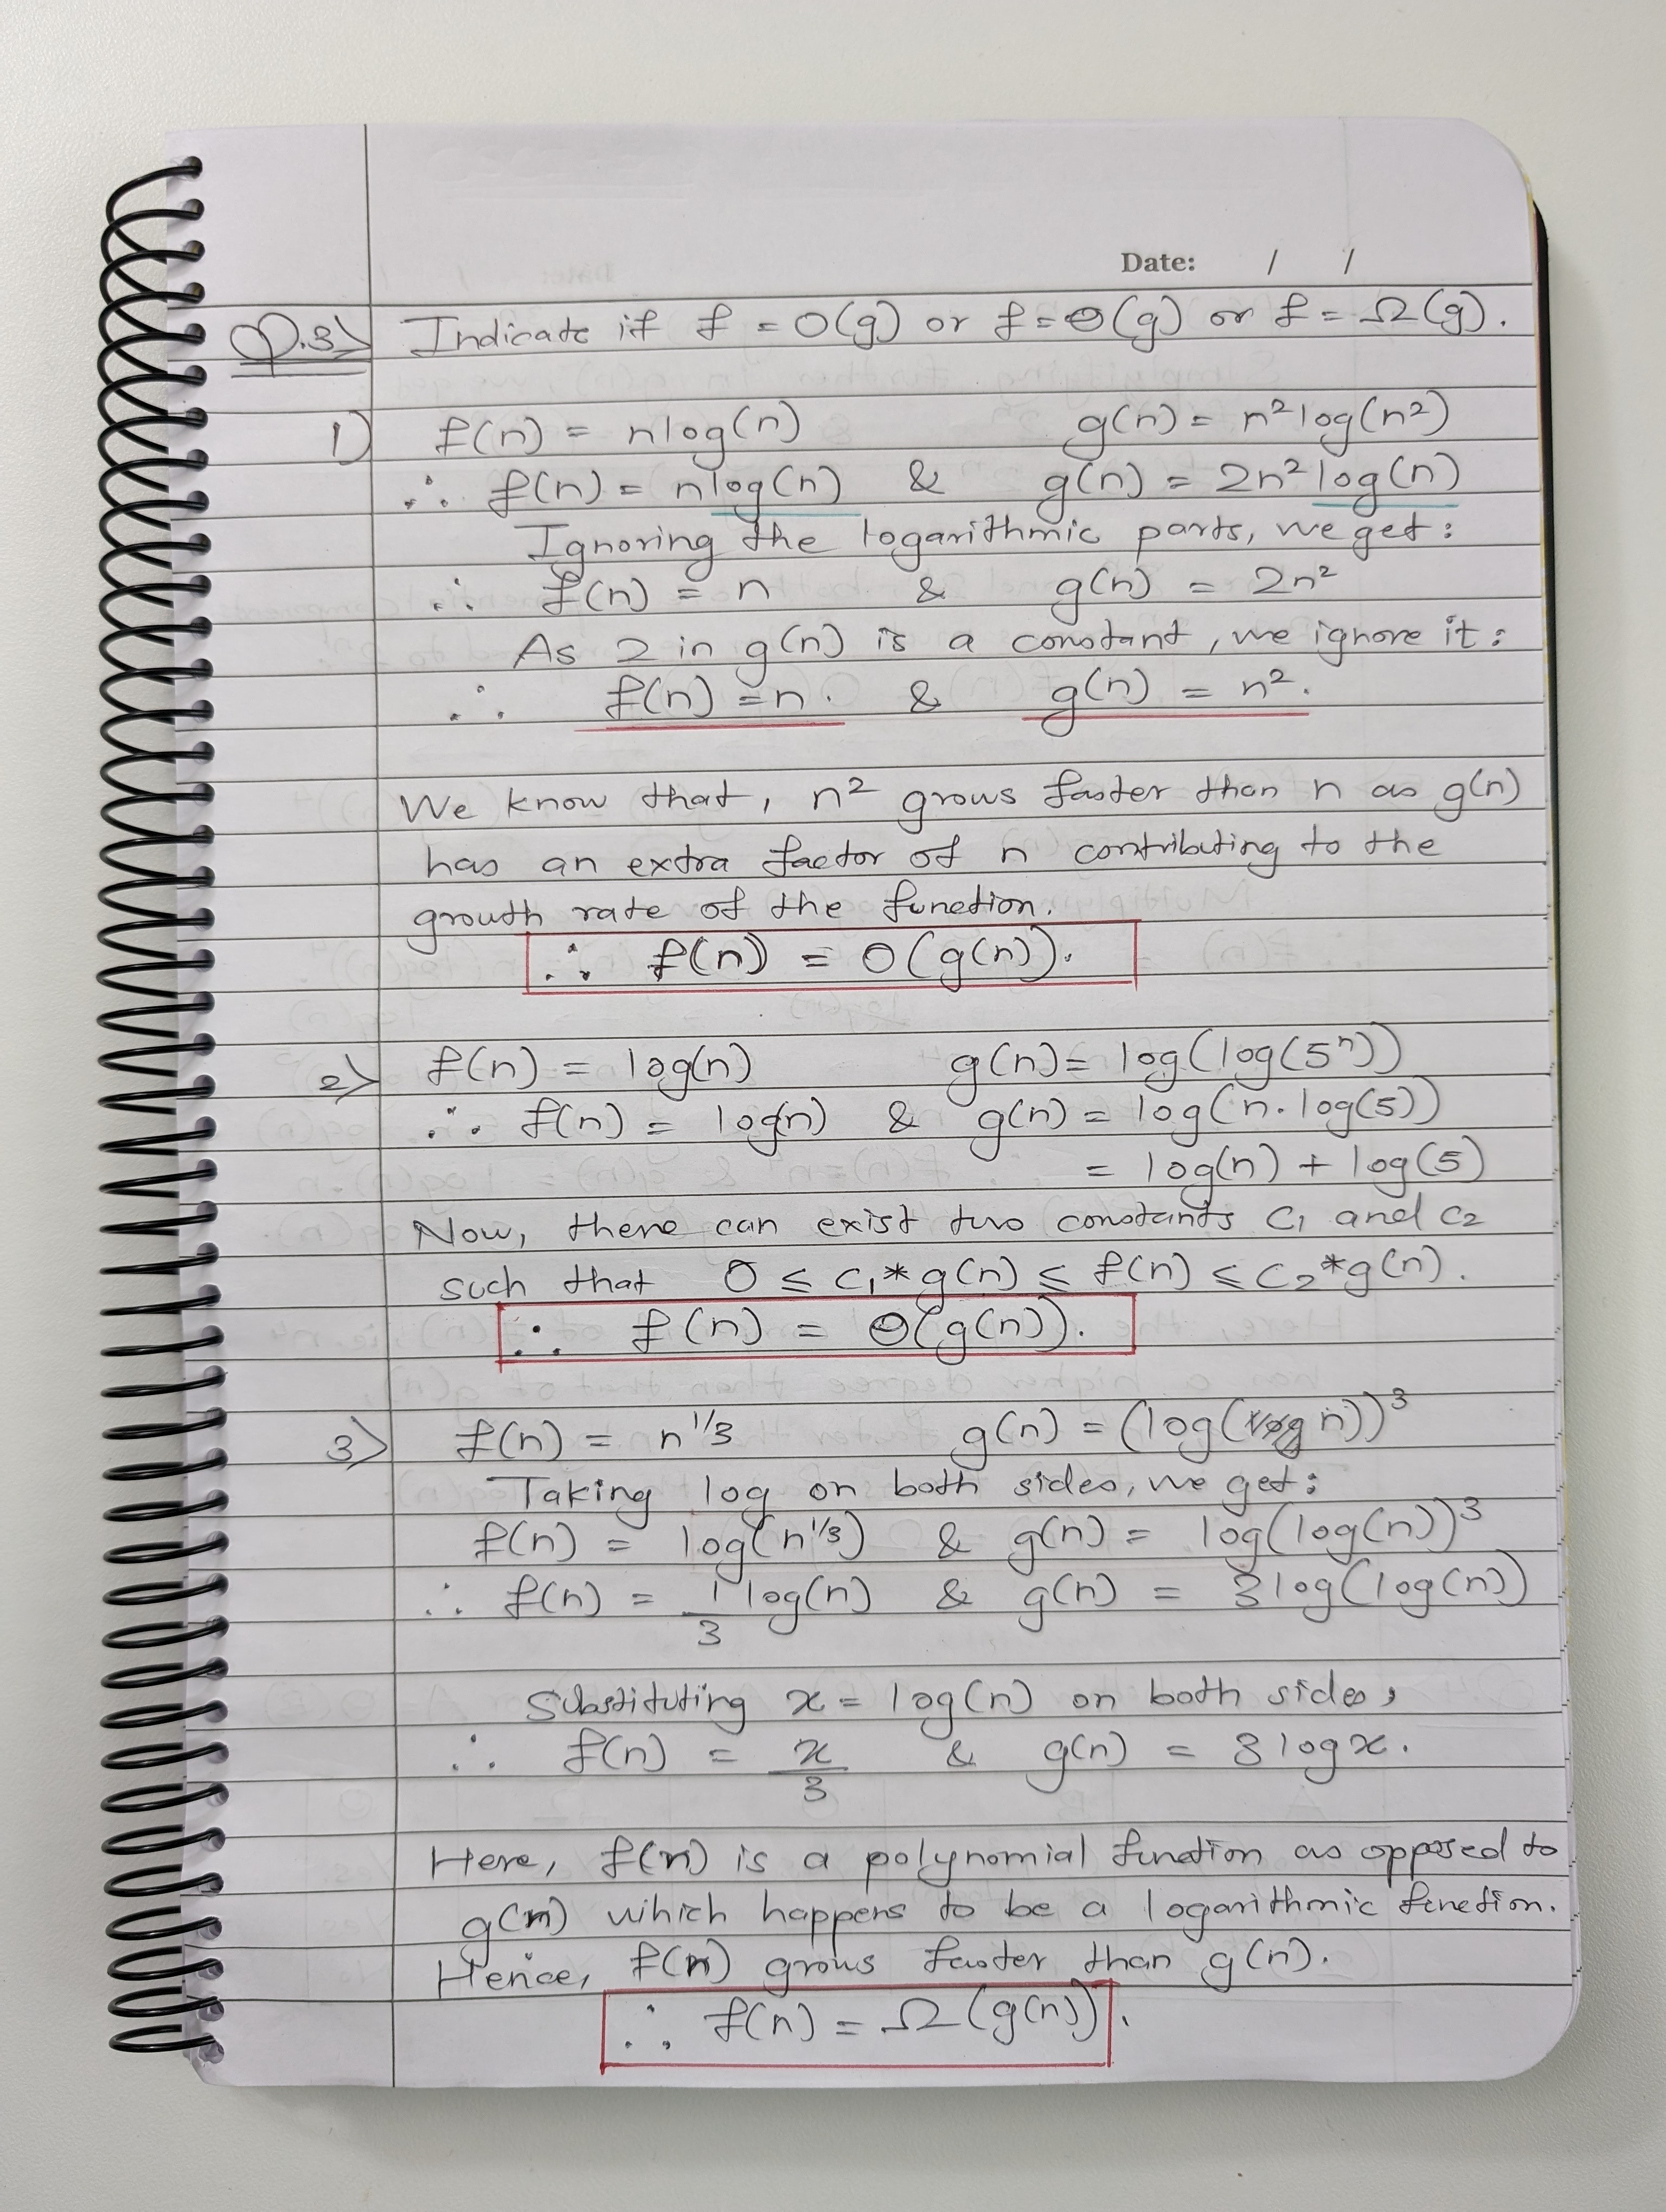 Date: / /
Q.3> Indicate if f = O(g) or f = Θ(g) or f = Ω(g).
1) f(n) = nlog(n) g(n) = n²log(n²)
∴ f(n) = nlog(n) & g(n) = 2n²log(n)
Ignoring the logarithmic parts, we get:
∴ f(n) = n & g(n) = 2n²
As 2 in g(n) is a constant, we ignore it:
∴ f(n) = n. & g(n) = n².
We know that, n² grows faster than n as g(n)
has an extra factor of n contributing to the
growth rate of the function.
∴ f(n) = O(g(n)).
2> f(n) = log(n) g(n) = log(log(5ⁿ))
∴ f(n) = log(n) & g(n) = log(n.log(5))
= log(n) + log(5)
Now, there can exist two constants c₁ and c₂
such that 0 ≤ c₁*g(n) ≤ f(n) ≤ c₂*g(n).
∴ f(n) = Θ(g(n)).
3> f(n) = n^1/3 g(n) = (log( n))³
Taking log on both sides, we get:
f(n) = log(n^1/3) & g(n) = log(log(n))³
∴ f(n) = 1/3 log(n) & g(n) = 3log(log(n))
Substituting x = log(n) on both sides,
∴ f(n) = x/3 & g(n) = 3logx.
Here, f(n) is a polynomial function as opposed to
g(n) which happens to be a logarithmic function.
Hence, f(n) grows faster than g(n).
∴ f(n) = Ω(g(n)).